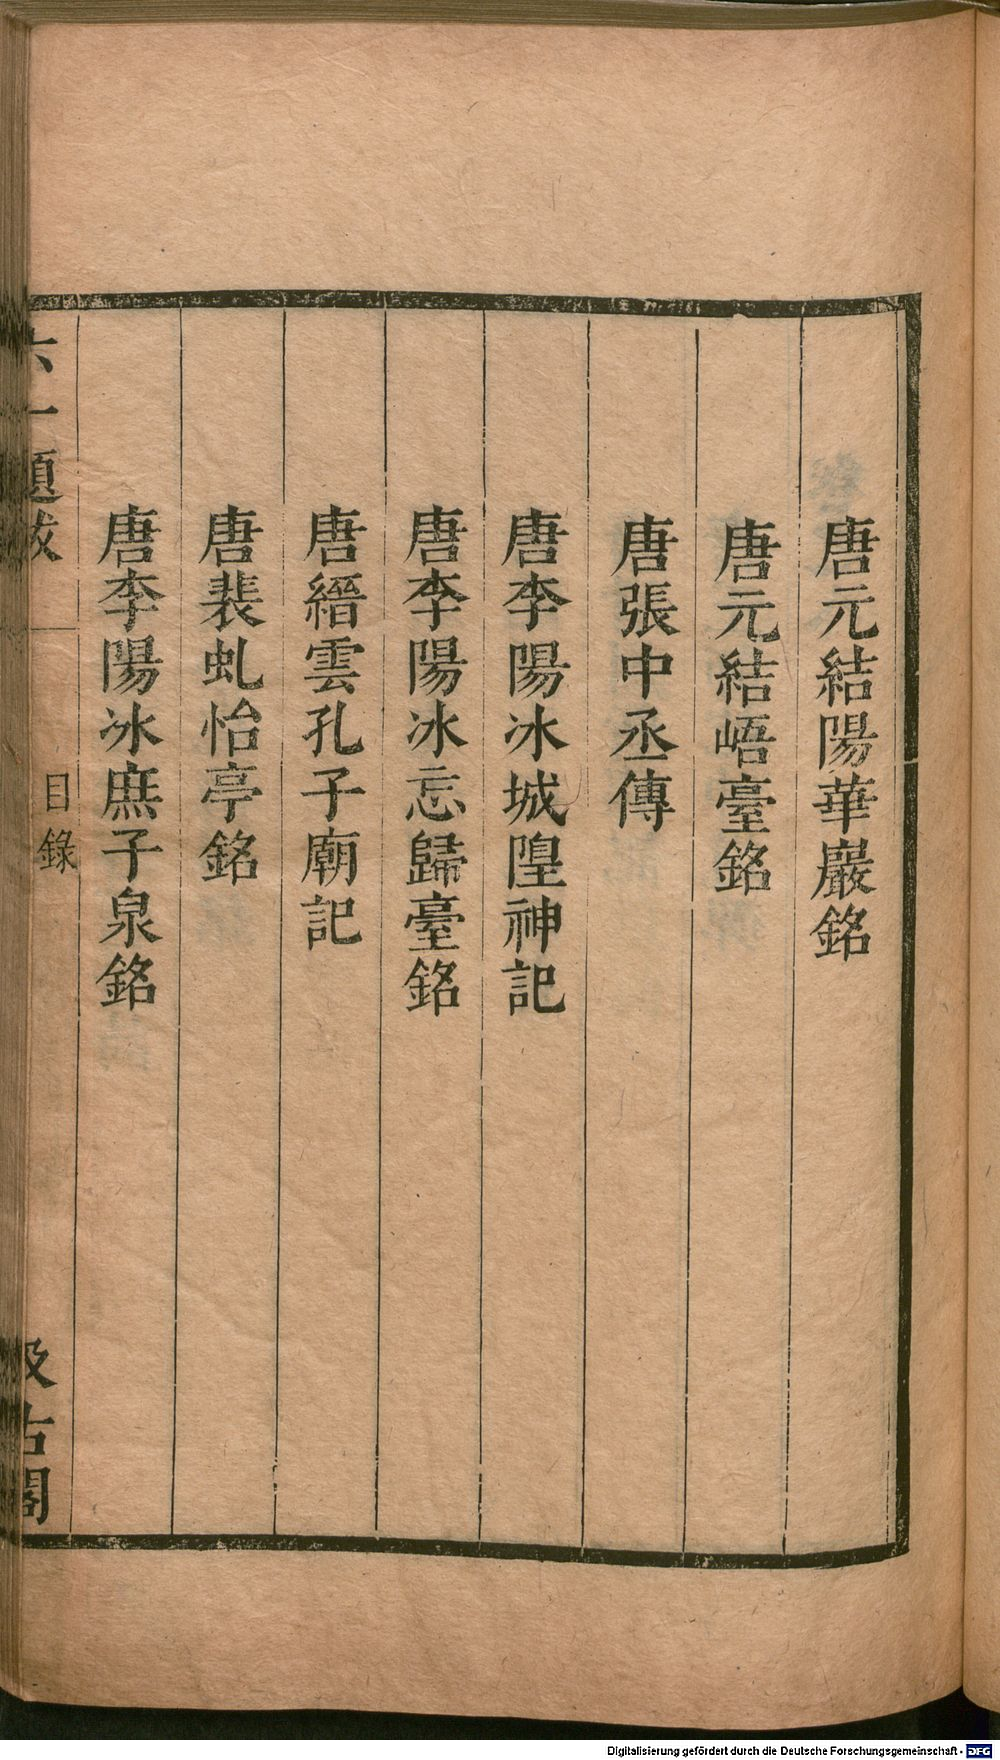 唐元結陽華巖銘
唐元結峿臺銘
唐張中丞傳
唐李陽冰城隍神記
唐李陽冰忘歸臺銘
唐縉雲孔子廟記
唐裴虬怡亭銘
唐李陽冰庶子泉銘
六一題跋
目錄
汲古閣
Digitalisierung gefördert durch die Deutsche Forschungsgemeinschaft - DFG